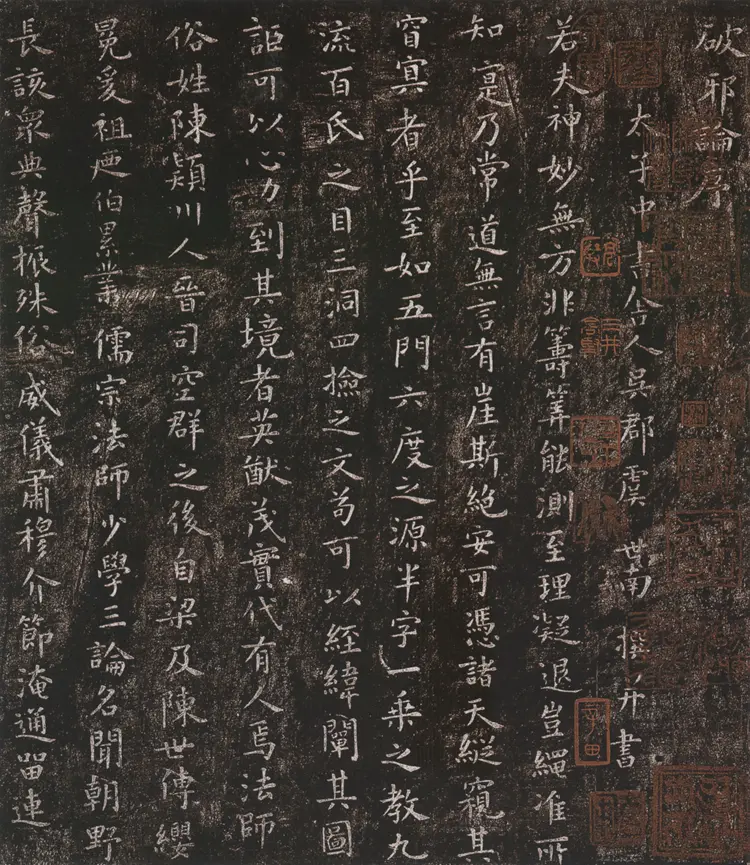 破邪論序
太子中書舍人吳郡虞世南撰并書
若夫神妙無方非籌筭能測至理凝退豈繩准所
知寔乃常道無言有崖斯絕安可憑諸天縱窺其
窅冥者乎至如五門六度之源半字一乘之教九
流百氏之目三洞四撿之文苟可以經緯闡其圖
詎可以心力到其境者英猷茂實代有人焉法師
俗姓陳潁川人晉司空群之後自梁及陳世傳纓
冕爰祖𢌞伯累業儒宗法師少學三論名聞朝野
長該衆典聲振殊俗威儀肅穆介節淹通留連